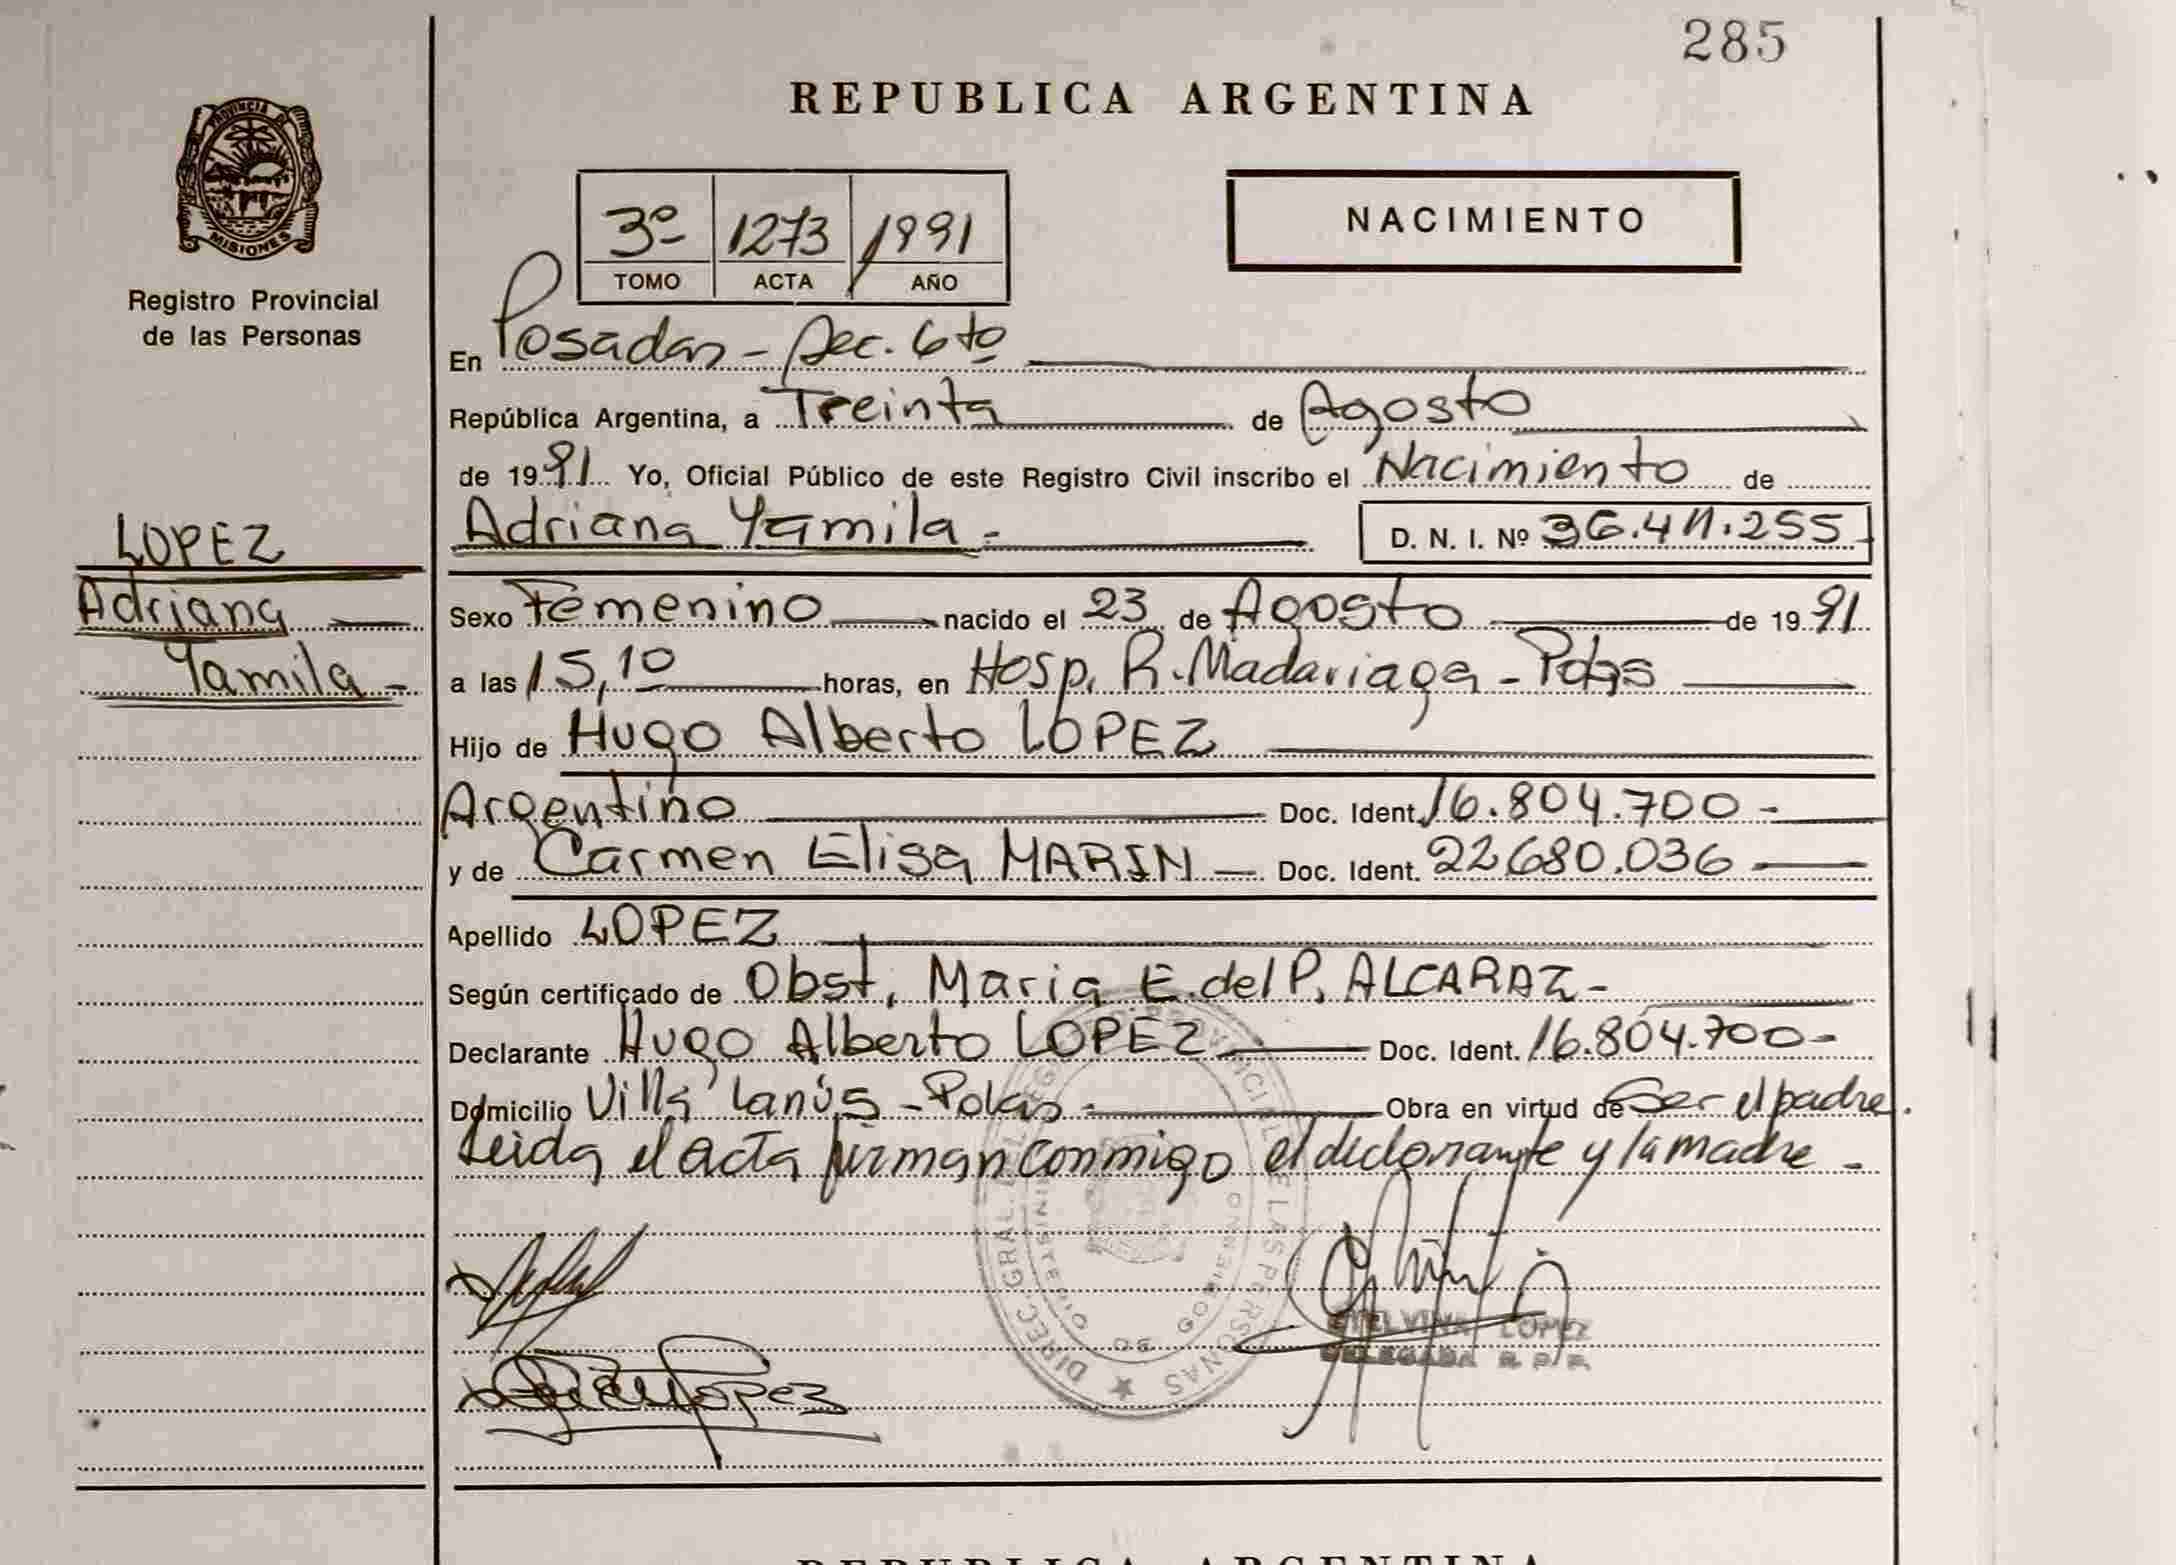 285
REPUBLICA ARGENTINA
PROVINCIA DE
MISIONES
Registro Provincial
de las Personas
3º 1273 1991
TOMO ACTA AÑO
NACIMIENTO
En Posadas - Sec. 6to
República Argentina, a Treinta de Agosto
de 1991 Yo, Oficial Público de este Registro Civil inscribo el Nacimiento de
Adriana Yamila - D. N. I. Nº 36.411.255
LOPEZ
Adriana
Yamila -
Sexo Femenino nacido el 23 de Agosto de 1991
a las 15,10 horas, en Hosp. R. Madariaga - Pdas
Hijo de Hugo Alberto LOPEZ
Argentino Doc. Ident. 16.804.700 -
y de Carmen Elisa MARIN - Doc. Ident. 22680.036
Apellido LOPEZ
Según certificado de Obst. Maria E. del P. ALCARAZ -
Declarante Hugo Alberto LOPEZ Doc. Ident. 16.804.700 -
Domicilio Villa Lanús - Pdas - Obra en virtud de Ser el padre.
Leida el acta firman conmigo el declarante y la madre -
DIREC. GRAL. DEL REG. PROVINCIAL DE LAS PERSONAS
MINISTERIO DE GOBIERNO
Lopez
ETELVINA LOPEZ
DELEGADA R. P. P.
REPUBLICA ARGENTINA